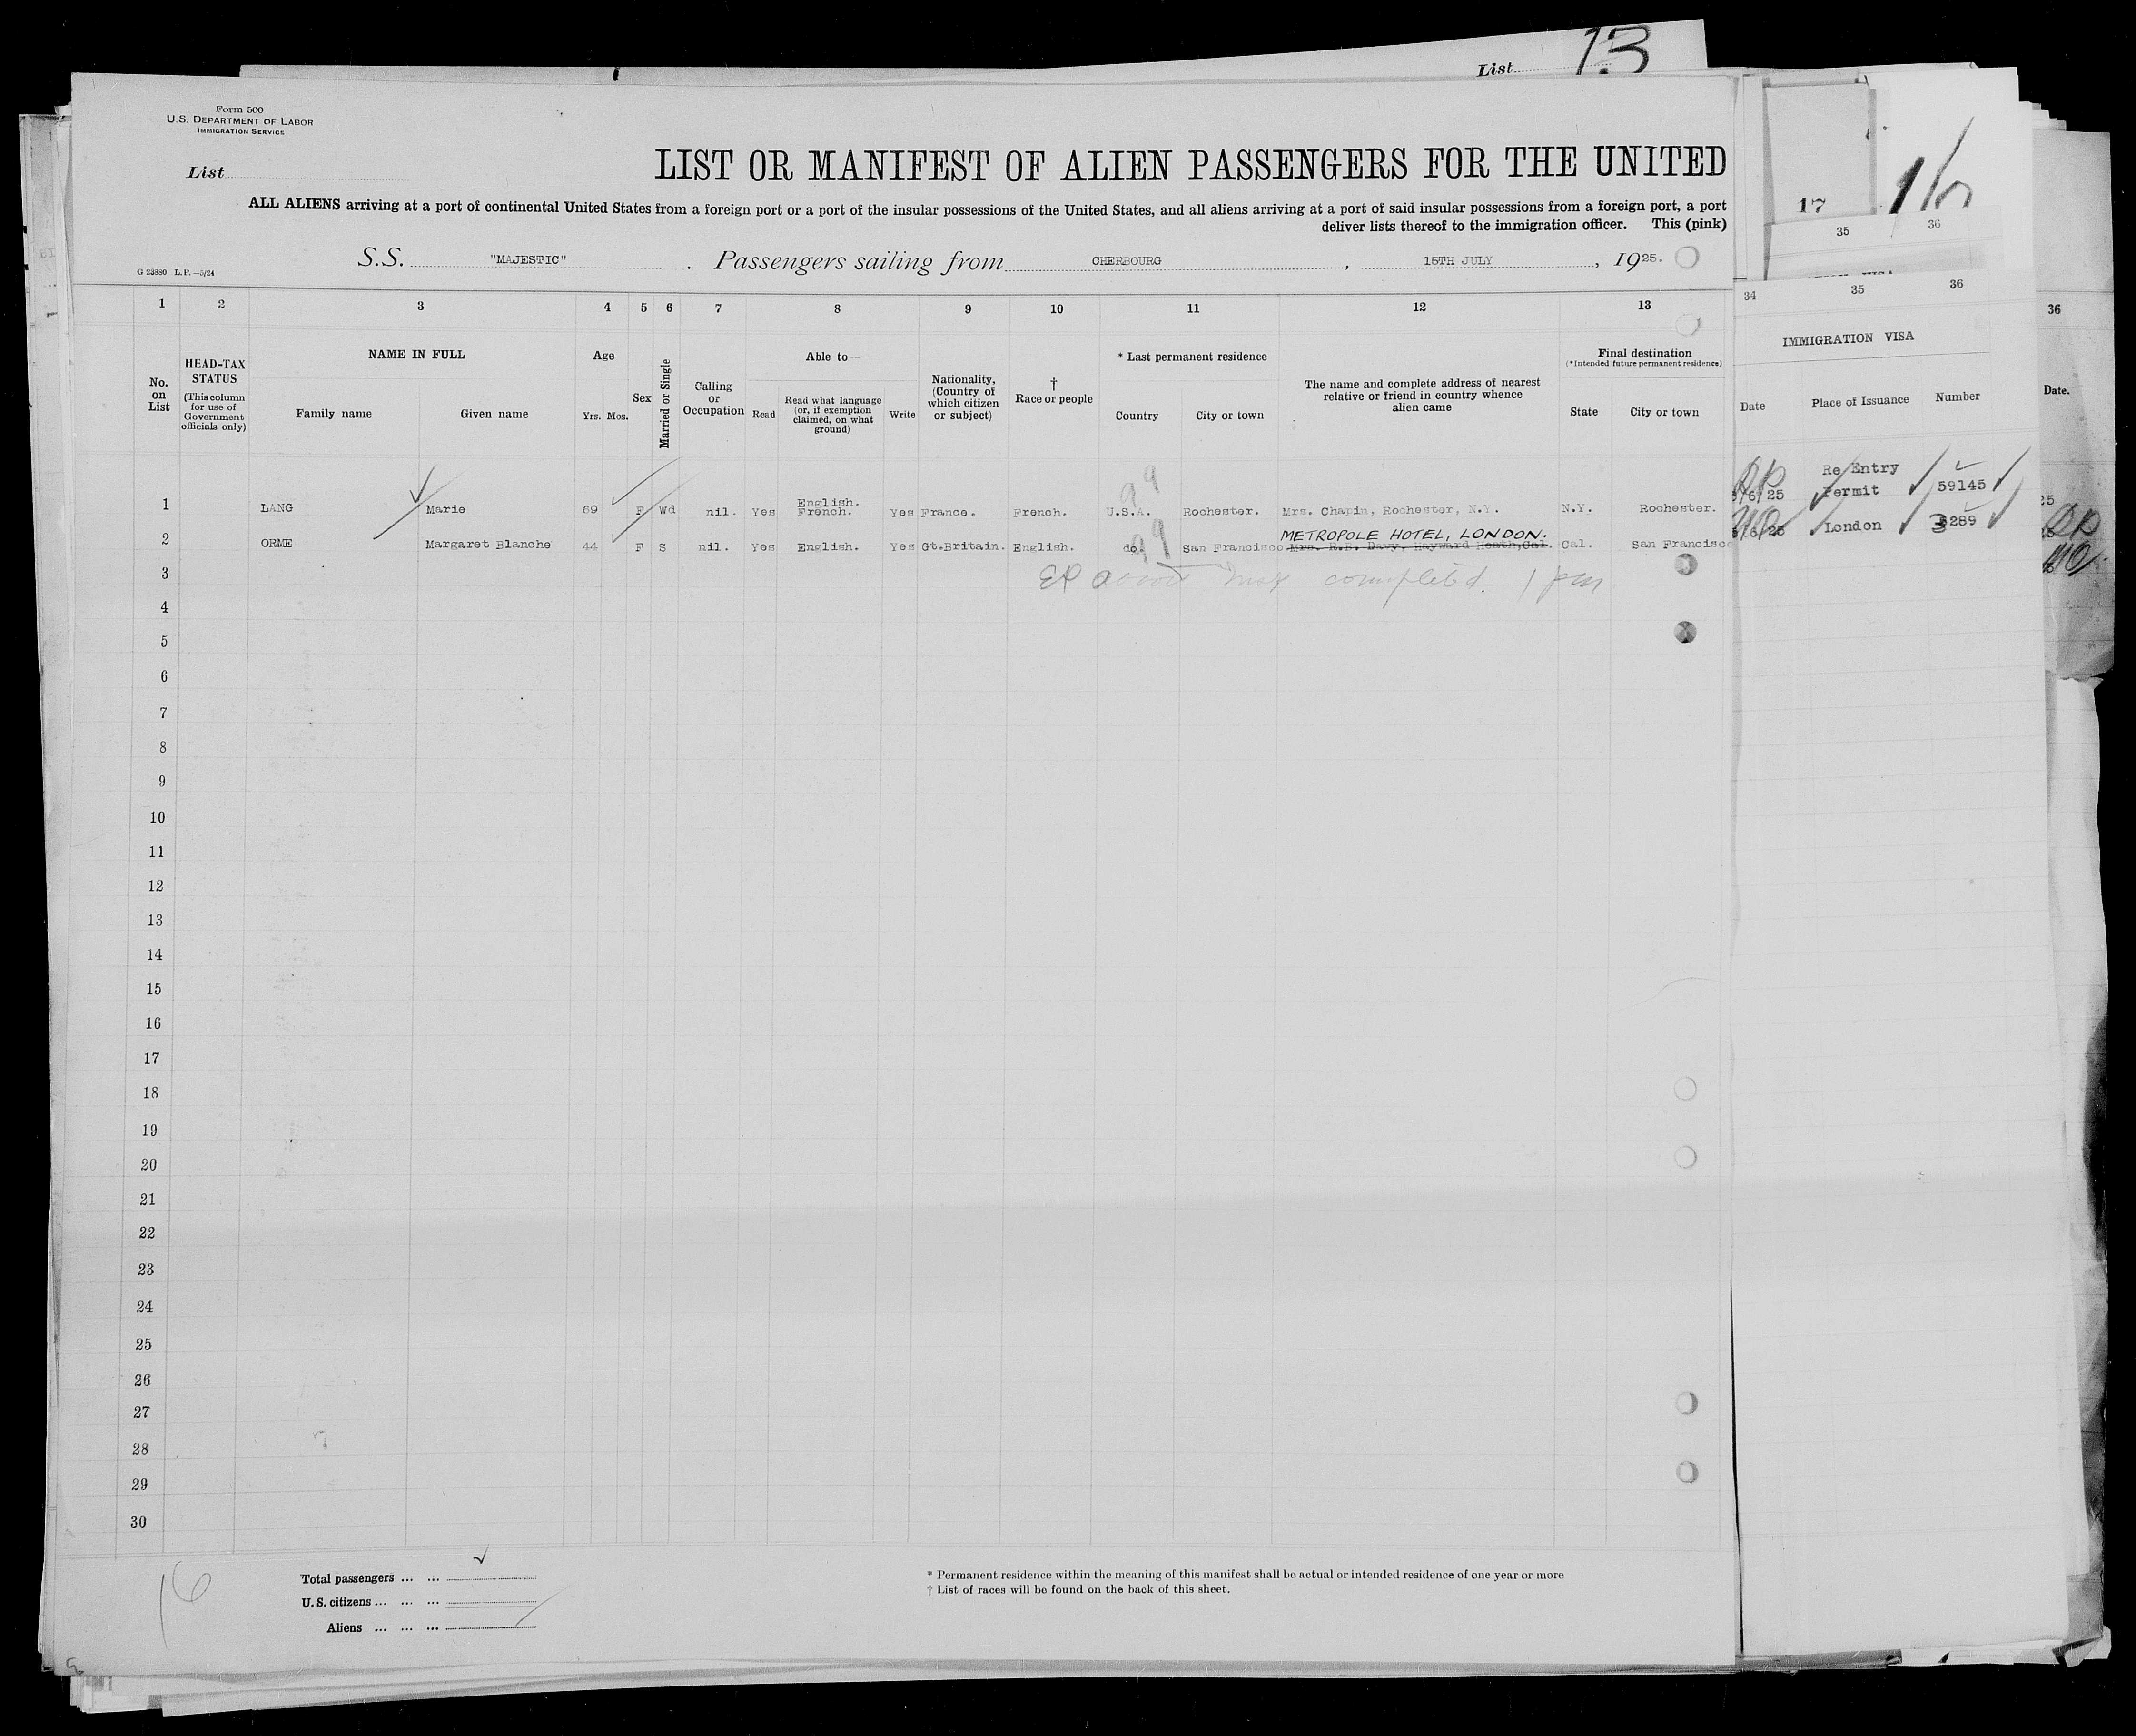 List 13
Form 500
U.S. DEPARTMENT OF LABOR
IMMIGRATION SERVICE
List
LIST OR MANIFEST OF ALIEN PASSENGERS FOR THE UNITED
ALL ALIENS arriving at a port of continental United States from a foreign port or a port of the insular possessions of the United States, and all aliens arriving at a port of said insular possessions from a foreign port, a port
deliver lists thereof to the immigration officer. This (pink)
S.S. "MAJESTIC" . Passengers sailing from CHERBOURG , 15TH JULY , 1925.
G 23880 L.P.—5/24
17
35 36
1 2 3 4 5 6 7 8 9 10 11 12 13 34 35 36 36
No. on List
HEAD-TAX STATUS
(This column for use of Government officials only)
NAME IN FULL
Family name Given name
Age
Yrs. Mos.
Sex
Married or Single
Calling or Occupation
Able to
Read
Read what language (or, if exemption claimed, on what ground)
Write
Nationality, (Country of which citizen or subject)
† Race or people
* Last permanent residence
Country City or town
The name and complete address of nearest relative or friend in country whence alien came
Final destination
(*Intended future permanent residence)
State City or town
IMMIGRATION VISA
Date Place of Issuance Number
Date.
1 LANG Marie 69 F Wd nil. Yes English. French. Yes France. French. U.S.A. Rochester. Mrs. Chapin, Rochester, N.Y. N.Y. Rochester. /6/25 Re Entry Permit 59145
99
25
2 ORME Margaret Blanche 44 F S nil. Yes English. Yes Gt.Britain. English. do. San Francisco METROPOLE HOTEL, LONDON. Mrs. R.B. Davy, Hayward Heath, Cal. Cal. San Francisco /6/25 London 3289
99
completed.
3
4
5
6
7
8
9
10
11
12
13
14
15
16
17
18
19
20
21
22
23
24
25
26
27
28
29
30
16
Total passengers ... ...
U.S. citizens ... ... ...
Aliens ... ... ...
* Permanent residence within the meaning of this manifest shall be actual or intended residence of one year or more
† List of races will be found on the back of this sheet.